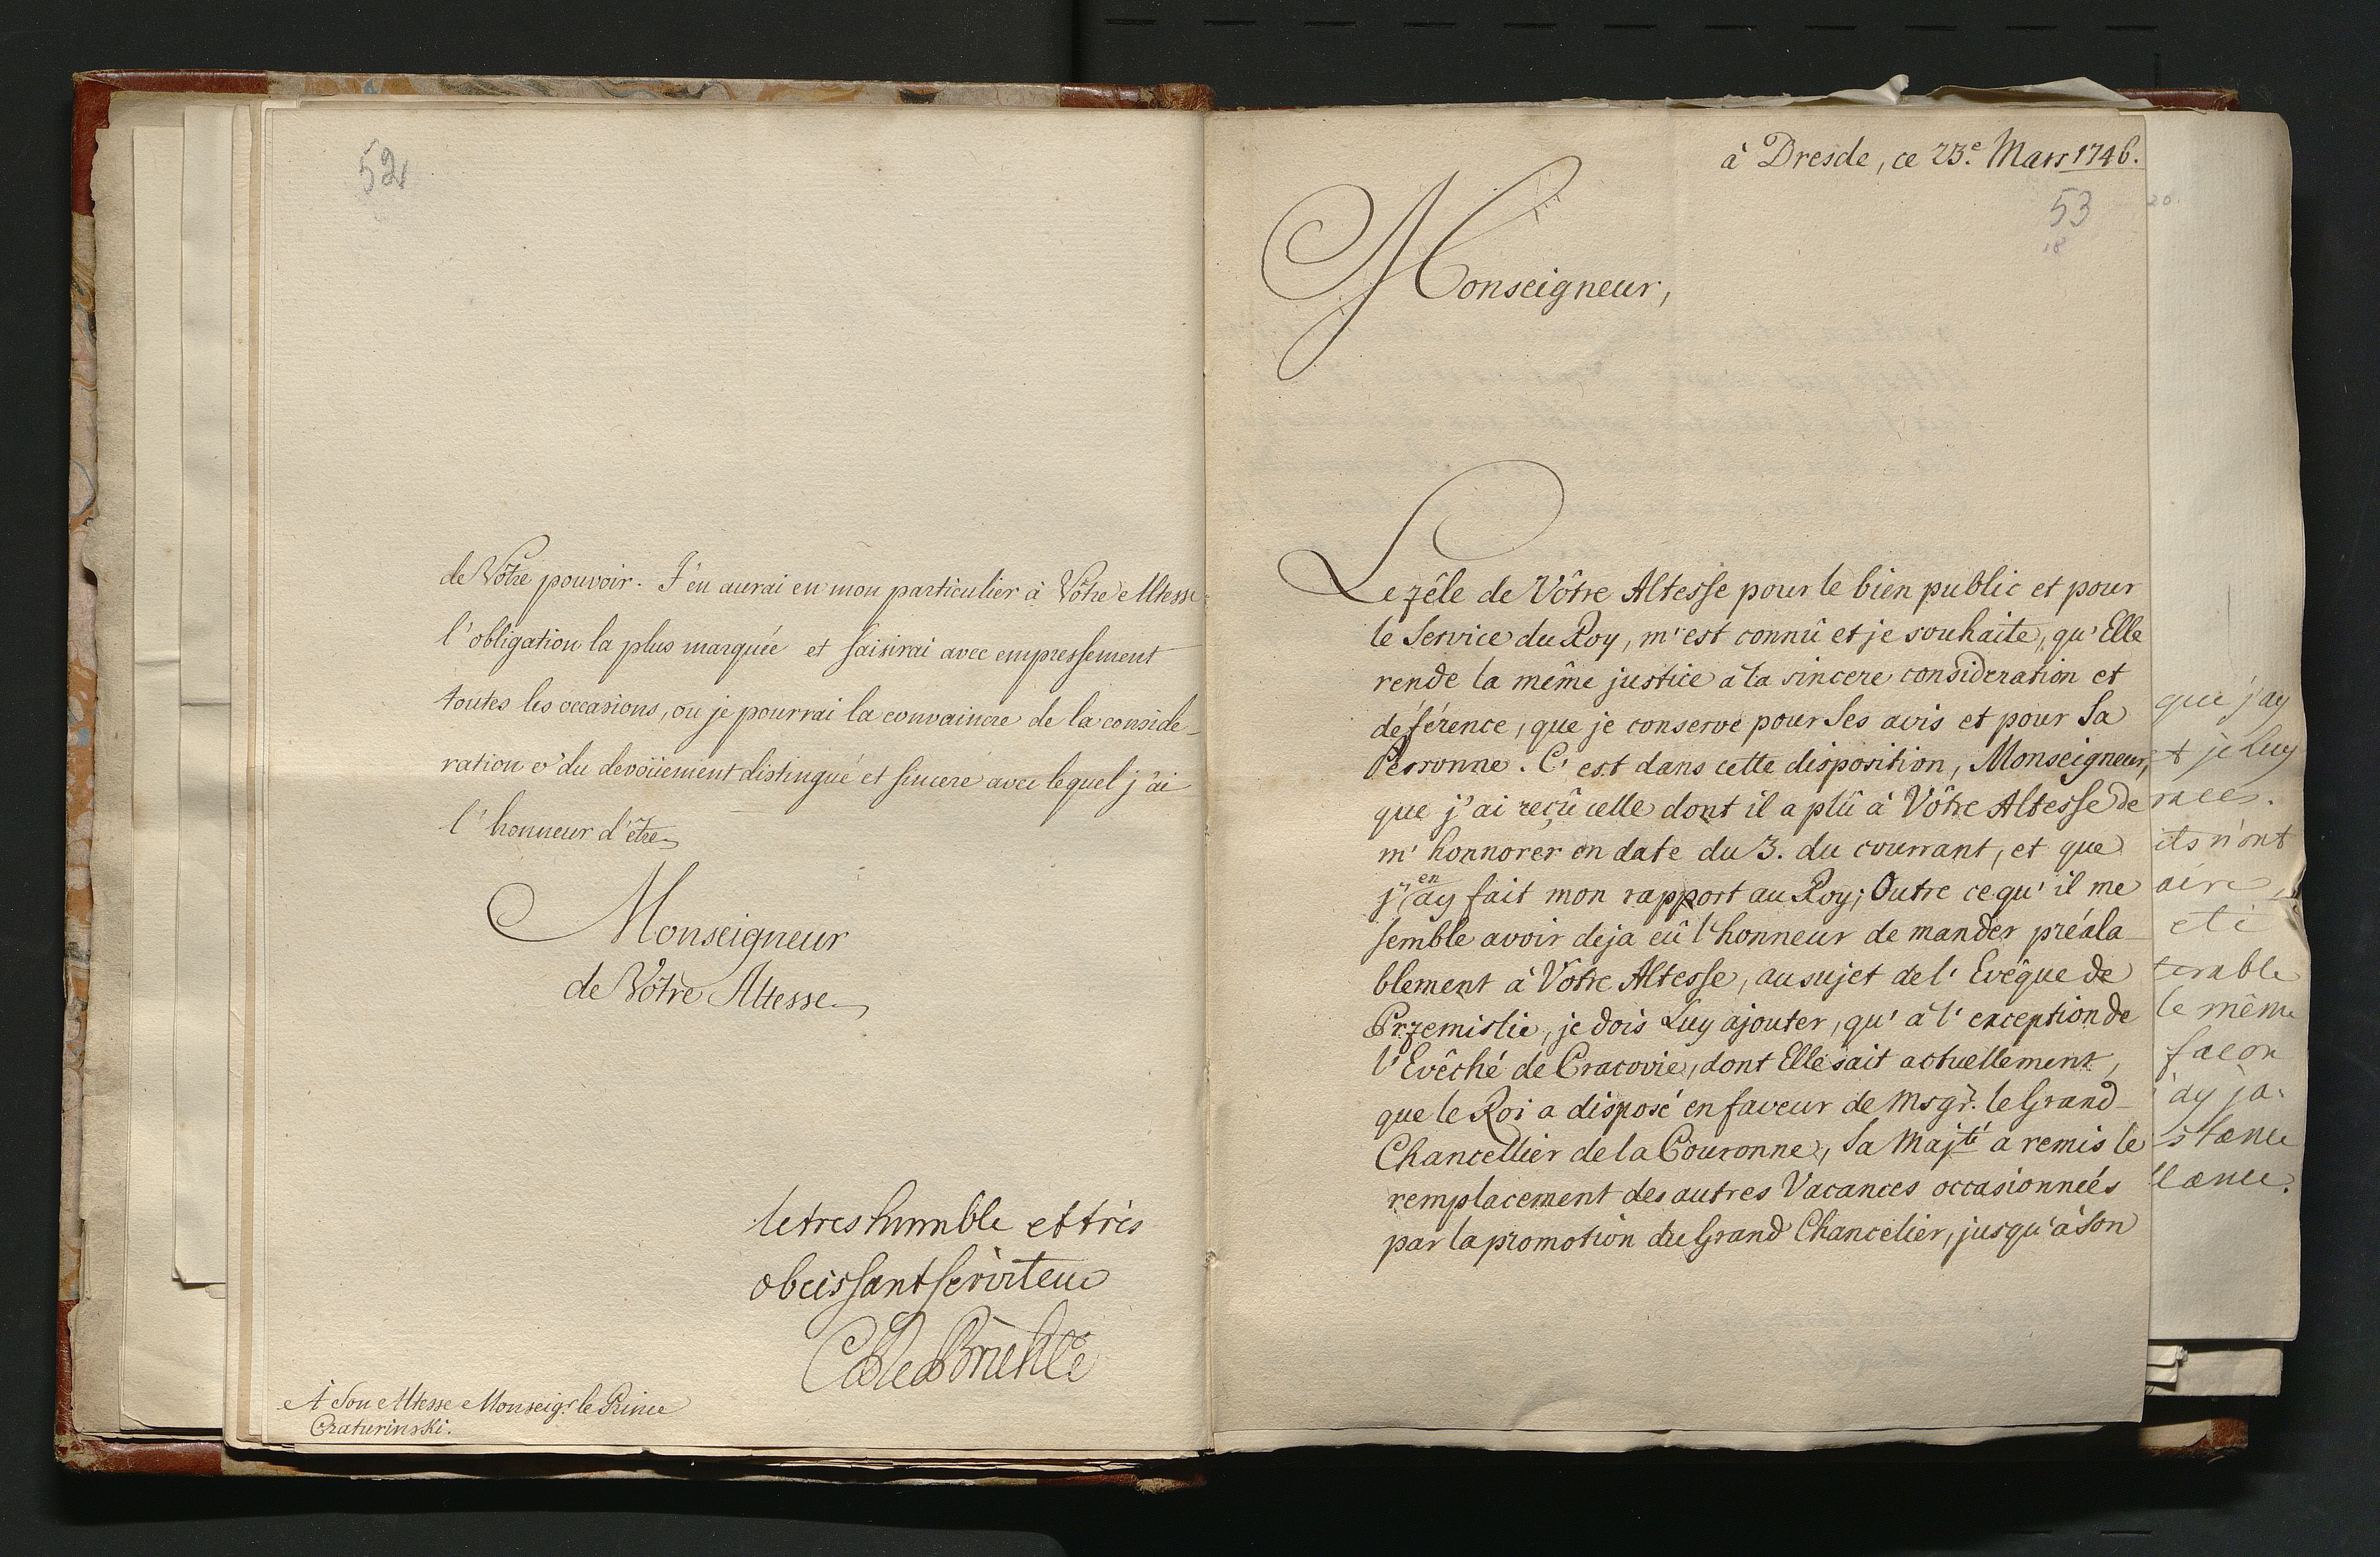 52
de Vôtre pouvoir. J'en aurai en mon particulier à Vôtre Altesse
l'obligation la plus marquée et saisirai avec empressement
toutes les occasions, où je pourrai la convaincre de la conside-
ration & du devoüement distingué et sincere avec lequel j'ai
l'honneur d'être
Monseigneur
de Vôtre Altesse
le tres humble et très
obeissant serviteur
C de Brühl
A Son Altesse Monseigr. le Prince
Czaturinski.
à Dresde, ce 23e. Mars 1746.
53
20.
18
Monseigneur,
Le zêle de Vôtre Altesse pour le bien public et pour
le Service du Roy, m'est connû et je souhaite, qu'Elle
rende la même justice a la sincere consideration et
déférence, que je conserve pour Ses avis et pour Sa
Personne. C'est dans cette disposition, Monseigneur,
que j'ai reçû celle dont il a plû à Vôtre Altesse de
m'honnorer en date du 3. du courrant, et que
j'en ay fait mon rapport au Roy; Outre ce qu'il me
semble avoir deja eû l'honneur de mander préala-
blement à Vôtre Altesse, au sujet de l'Evêque de
Przemislie, je dois Luy ajouter, qu'à l'exception de
l'Evêché de Cracovie, dont Elle sait actuellement,
que le Roi a disposé en faveur de Msgr. le Grand-
Chancellier de la Couronne, Sa Majté a remis le
remplacement des autres Vacances occasionneés
par la promotion du Grand Chancelier, jusqu'à Son
que j'ay
t je Luy
races.
ils n'ont
aire,
eté
terable
le même
facon
j'ay ja-
stance
lance.